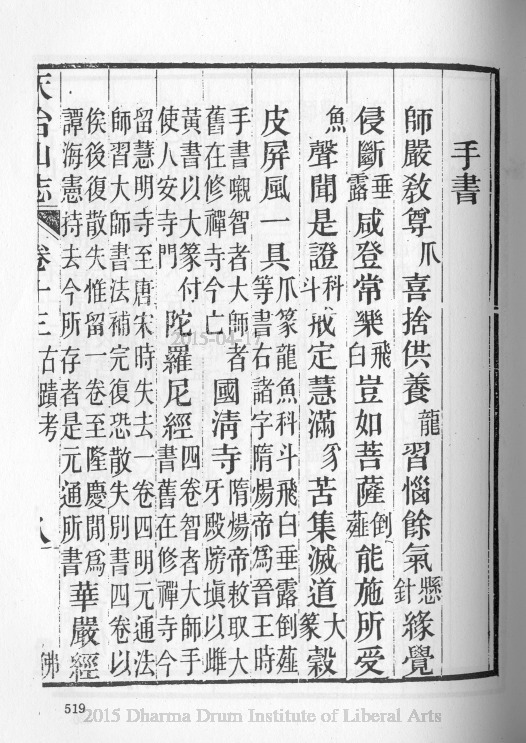 手書
師嚴敎尊爪喜捨供養龍習惱餘氣懸針緣覺
侵斷垂露咸登常樂飛白豈如菩薩倒薤能施所受
魚聲聞是證科斗戒定慧滿豸苦集滅道大篆穀
皮屏風一具爪篆龍魚科斗飛白垂露倒薤等書右諸字隋煬帝爲晉王時
手書嚫智者大師者舊在修禪寺今亡國淸寺隋煬帝敕取大牙殿牓塡以雌
黃書以大篆付使人安寺門陀羅尼經四卷智者大師手書舊在修禪寺今
留慧明寺至唐宋時失去一卷四明元通法師習大師書法補完復恐散失別書四卷以
俟後復散失惟留一卷至隆慶間爲譚海憲持去今所存者是元通所書華嚴經
天台山志 卷十三 古蹟考 八 佛
2015-04-17
519
2015 Dharma Drum Institute of Liberal Arts